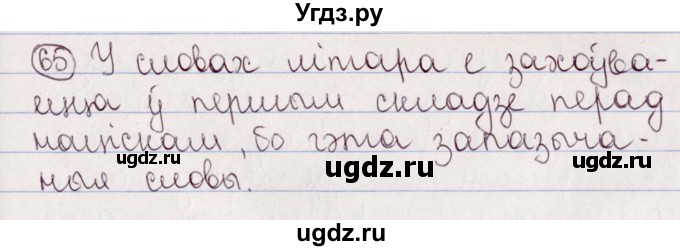 Угдз.ру
65 У словах літара е захоўва-
ецца ў першым складзе перад
націскам, бо гэта запазыча-
ныя словы.
ugdz.ru ugdz.ru ugdz.ru
ugdz.ru ugdz.ru